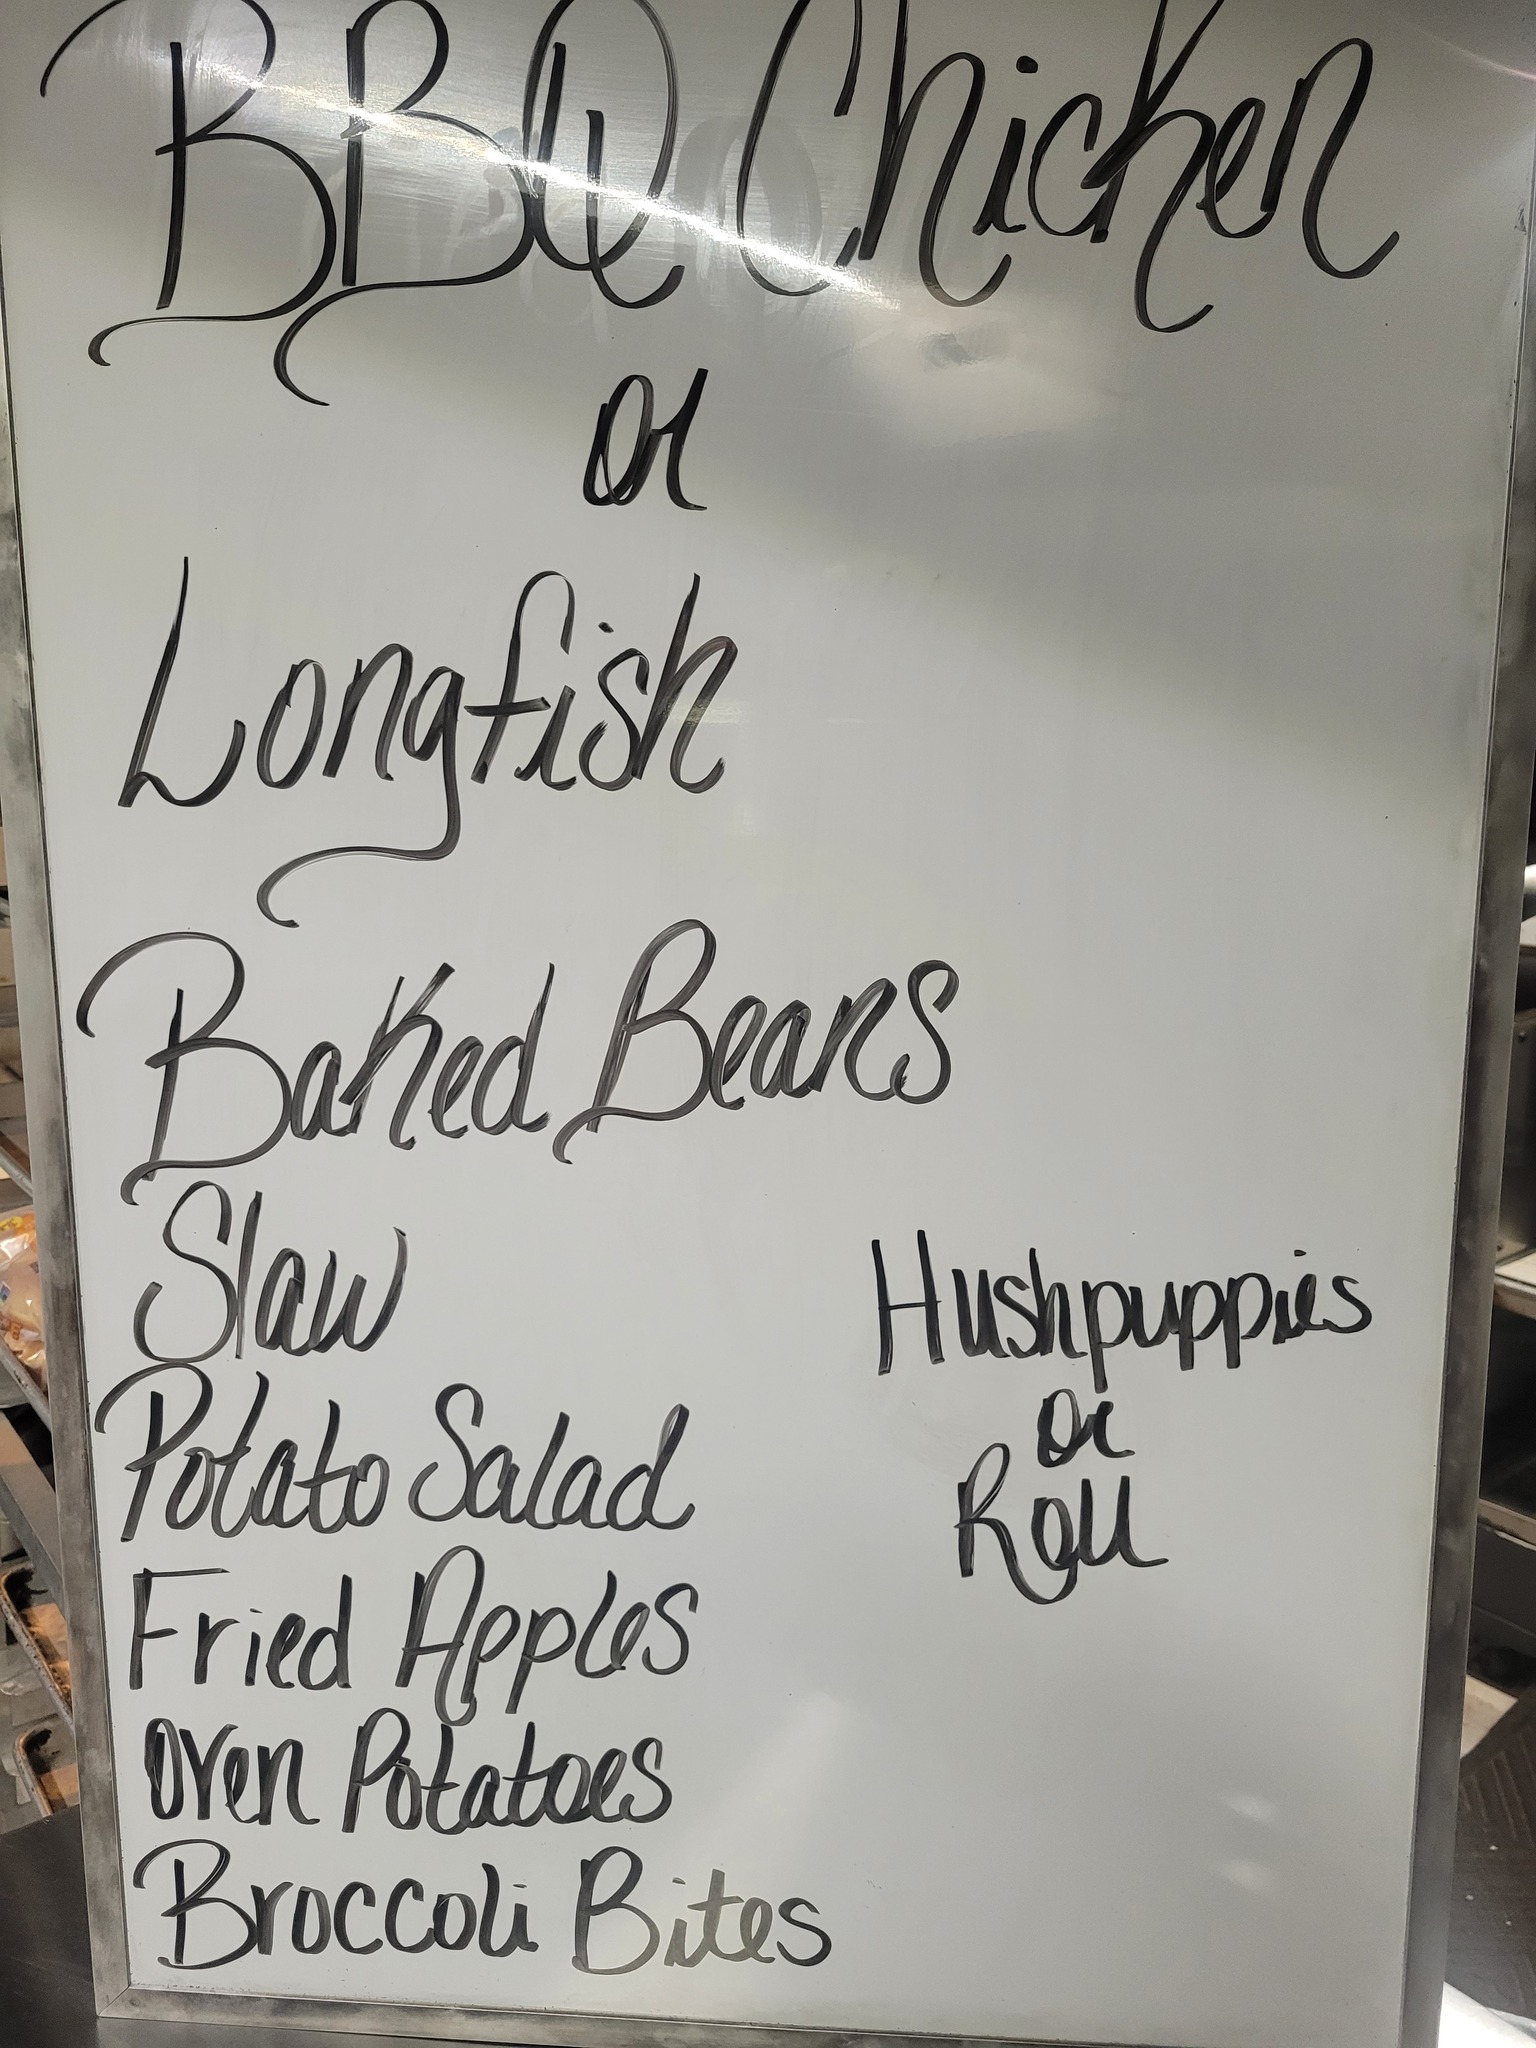 BBQ Chicken
or
Longfish
Baked Beans
Slaw
Potato Salad
Fried Apples
Oven Potatoes
Broccoli Bites
Hushpuppies
or
Roll